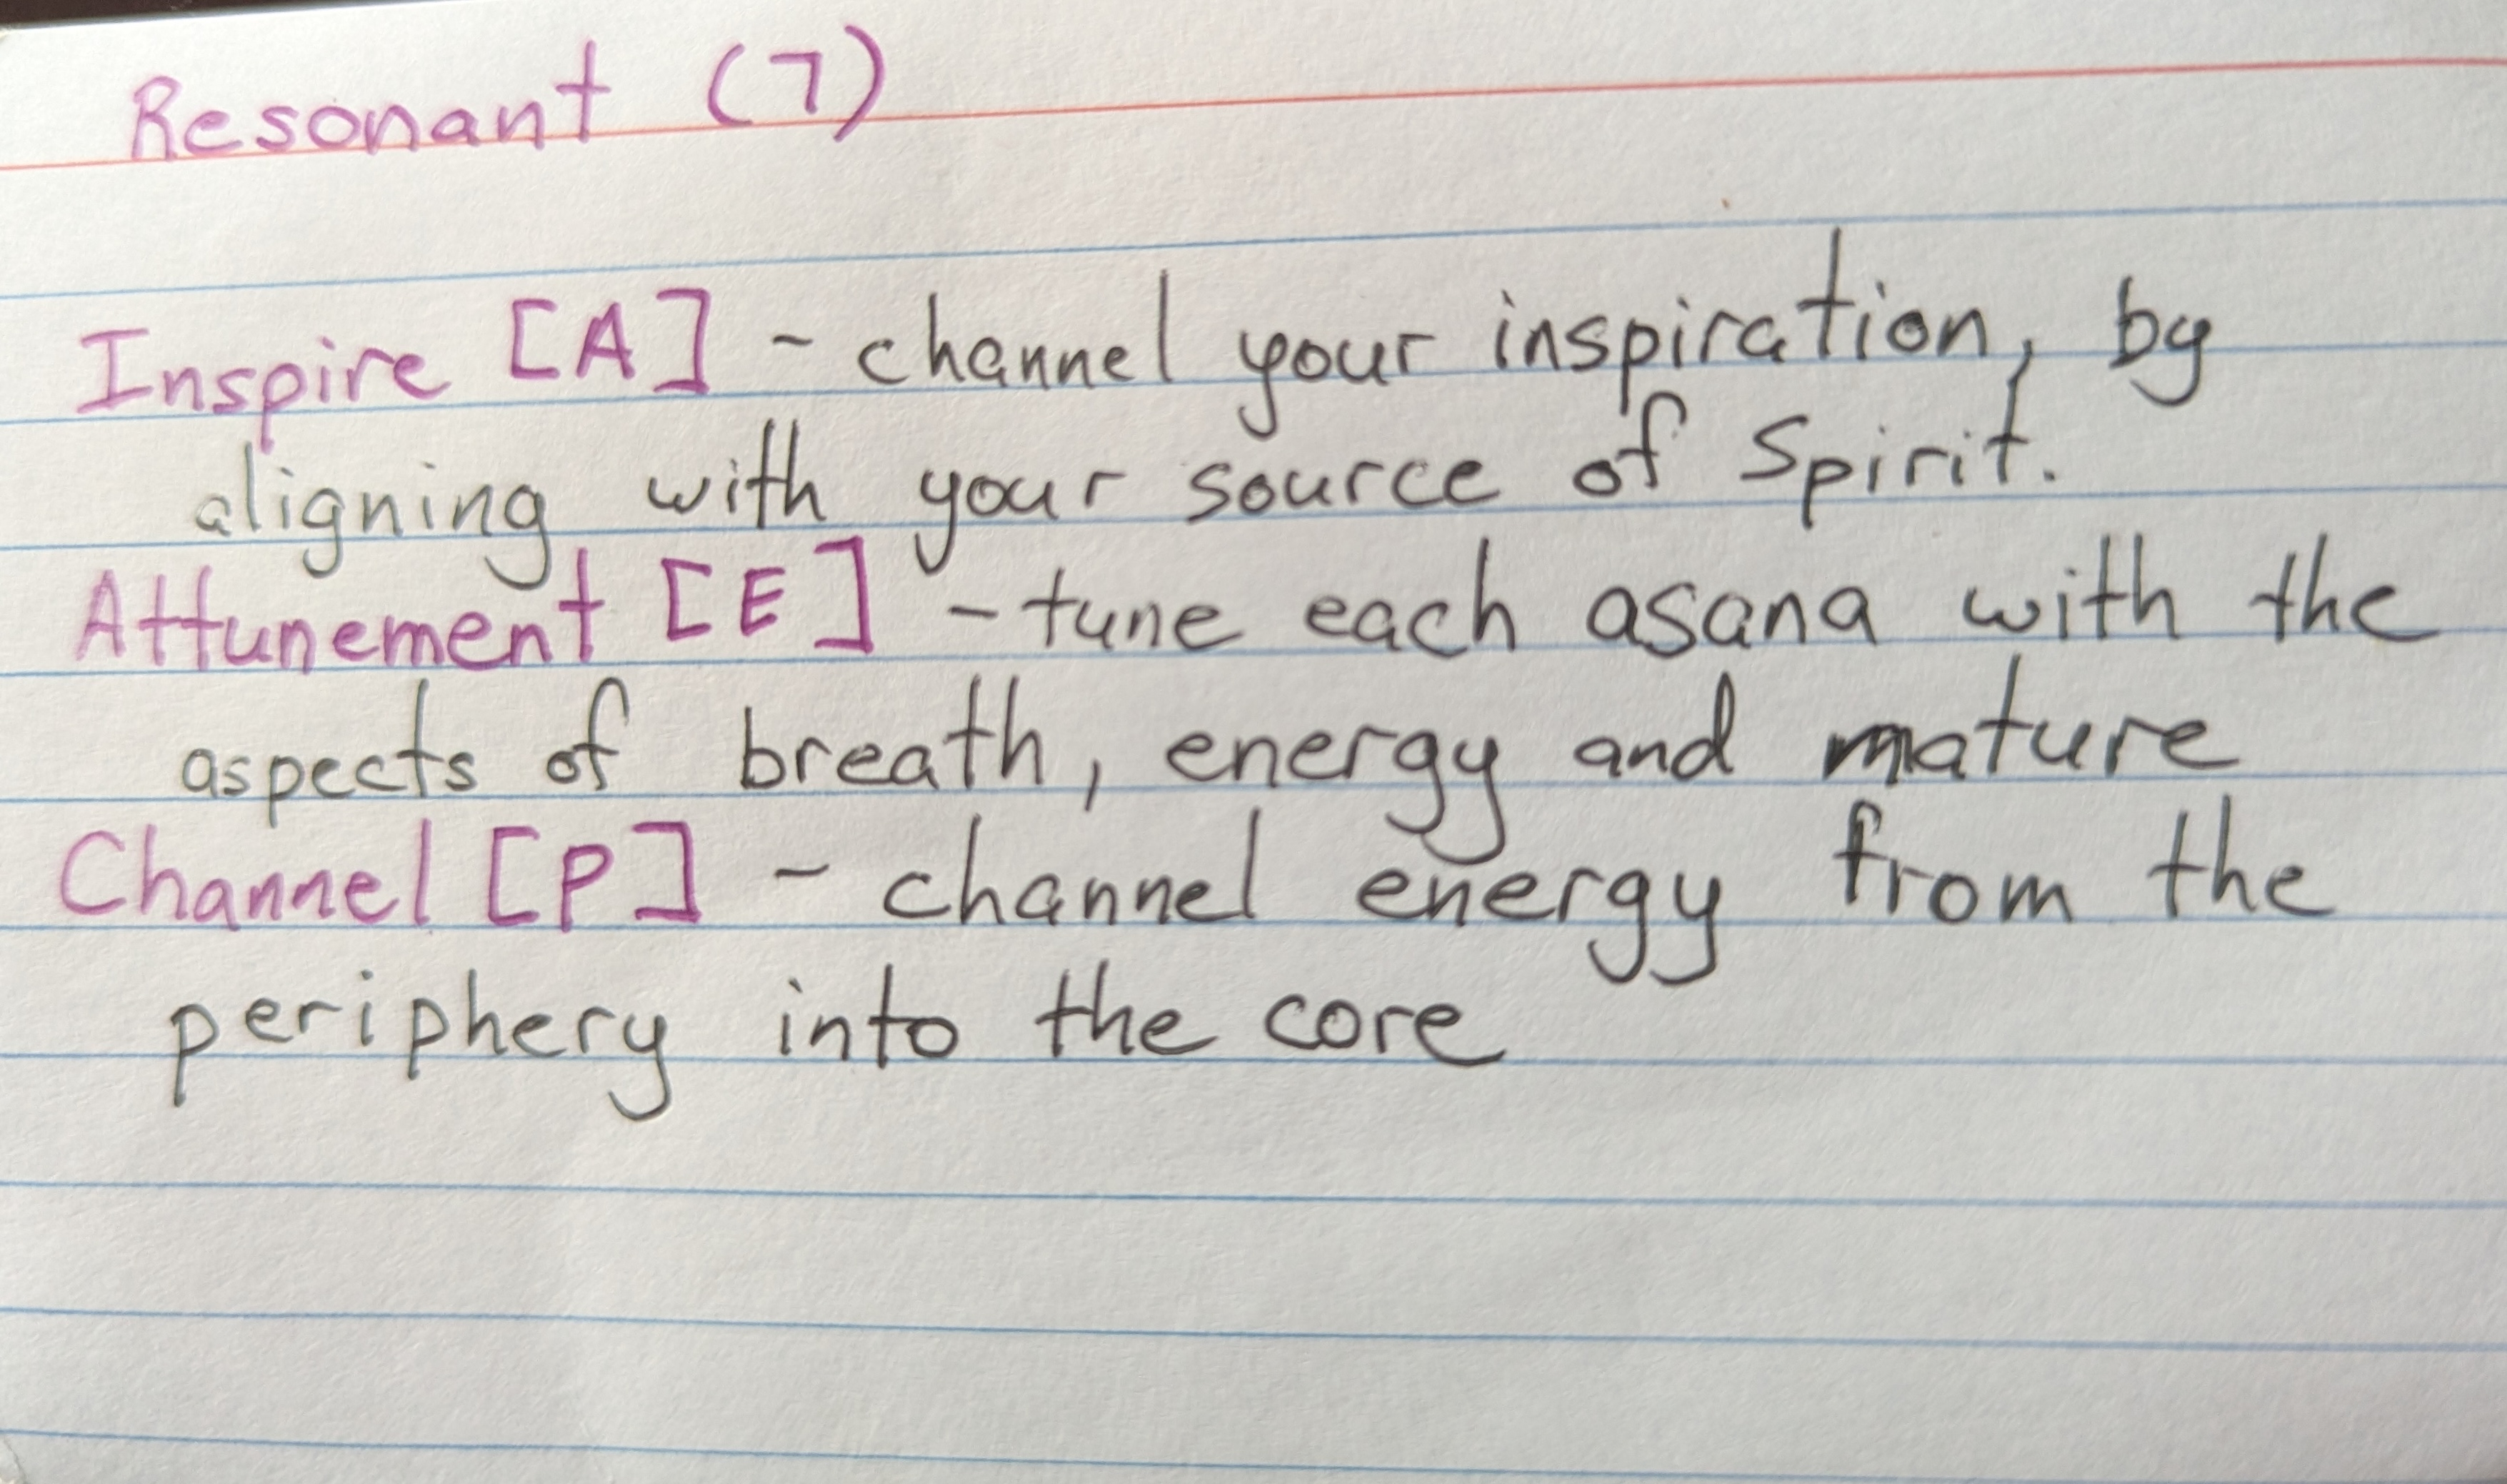 Resonant (7)
Inspire [A] - channel your inspiration, by
aligning with your source of Spirit.
Attunement [E] - tune each asana with the
aspects of breath, energy and mature
Channel [P] - channel energy from the
periphery into the core